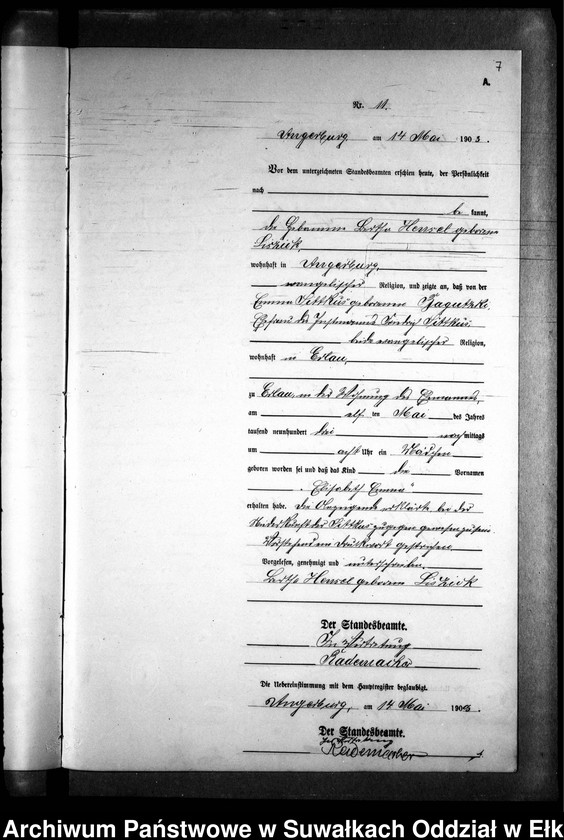 7
A.
Nr. 11.
Angerburg am 14 Mai 1903.
Vor dem unterzeichneten Standesbeamten erschien heute, der Persönlichkeit
nach
be kannt,
die Hebamme Bertha Hensel geborene
Lisziek,
wohnhaft in Angerburg,
evangelischer Religion, und zeigte an, daß von der
Emma Sittkus geborenen Jagutzki
Ehefrau des Instmanns Sittkus
beide evangelischer Religion,
wohnhaft in Erlau,
zu Erlau, in der Wohnung des Ehemanns,
am elf ten Mai des Jahres
tausend neunhundert drei nach mittags
um acht Uhr ein Mädchen
geboren worden sei und daß das Kind die Vornamen
„Elisabeth Emma“
erhalten habe. Die Anzeigende erklärte bei der
Niederkunft der Sittkus zugegen gewesen zu sein.
Vorstehend ein Druckwort gestrichen.
Vorgelesen, genehmigt und unterschrieben.
Bertha Hensel geborene Lisziek
Der Standesbeamte.
In Vertretung
Rademacher
Die Uebereinstimmung mit dem Hauptregister beglaubigt.
Angerburg, am 14 Mai 1903.
Der Standesbeamte.
In Vertretung
Rademacher
Archiwum Państwowe w Suwałkach Oddział w Ełk